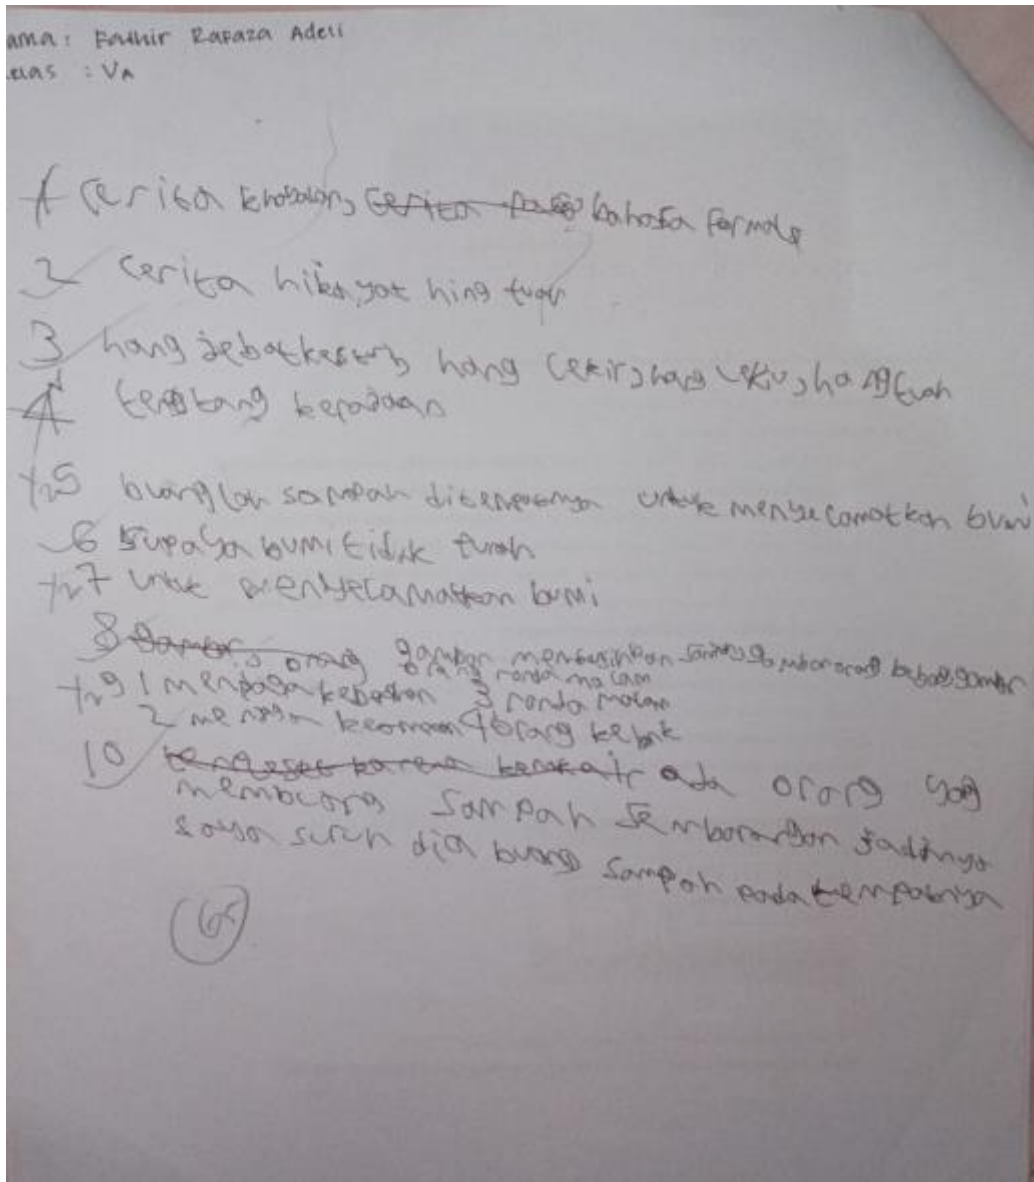 ama: Fathir Rafaza Adeli
elas : VA
1 cerita khayalan, cerita bahasa formal
2 cerita hikayat hing tuah
3 hang jebat kesturi, hang lekir, hang lekiu, hang tuah
4 tentang kerajaan
1/2 5 buanglah sampah ditempatnya untuk menyelamatkan bumi
6 supaya bumi tidak
1/2 7 untuk menyelamatkan bumi
8 orang gambar membersihkan gambar orang gambar
orang ronda malam
1/2 9 1 menjaga 3 ronda malam
2 4 orang
10 karena ada orang yang
membuang sampah sembarangan jadinya
saya suruh dia buang sampah pada tempatnya
65